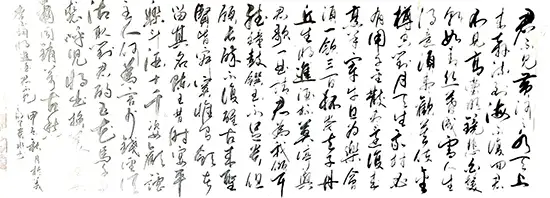 君不見黃河之水天上
來奔流到海不復回君
不見高堂明鏡悲白髮
朝如青絲暮成雪人生
得意須盡歡莫使金
樽空對月天生我材必
有用千金散盡還復來
烹羊宰牛且為樂會
須一飲三百杯岑夫子丹
丘生將進酒杯莫停與
君歌一曲請君為我傾耳
聽鐘鼓饌玉不足貴但
願長醉不復醒古來聖
賢皆寂寞惟有飲者
留其名陳王昔時宴平
樂斗酒十千恣歡謔
主人何為言少錢徑須
沽取對君酌五花馬千
金裘呼兒將出換美酒與
爾同銷萬古愁
甲午秋月